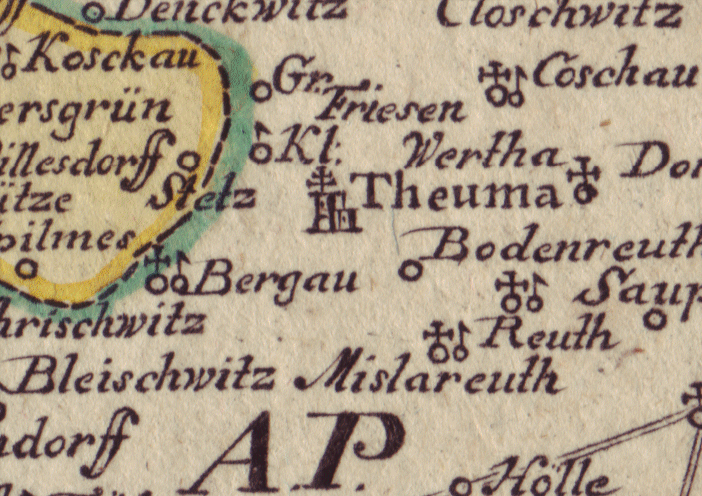 Denckwitz
Closchwitz
Kosckau
Gr.
Coschau
Friesen
ersgrün
Kl:
Wertha
illesdorff
Dor
Theuma
ütze
Stelz
pilmes
Bodenreuth
Bergau
Saup
hrischwitz
Reuth
Bleischwitz
Mislareuth
ndorff
AP.
Hölle